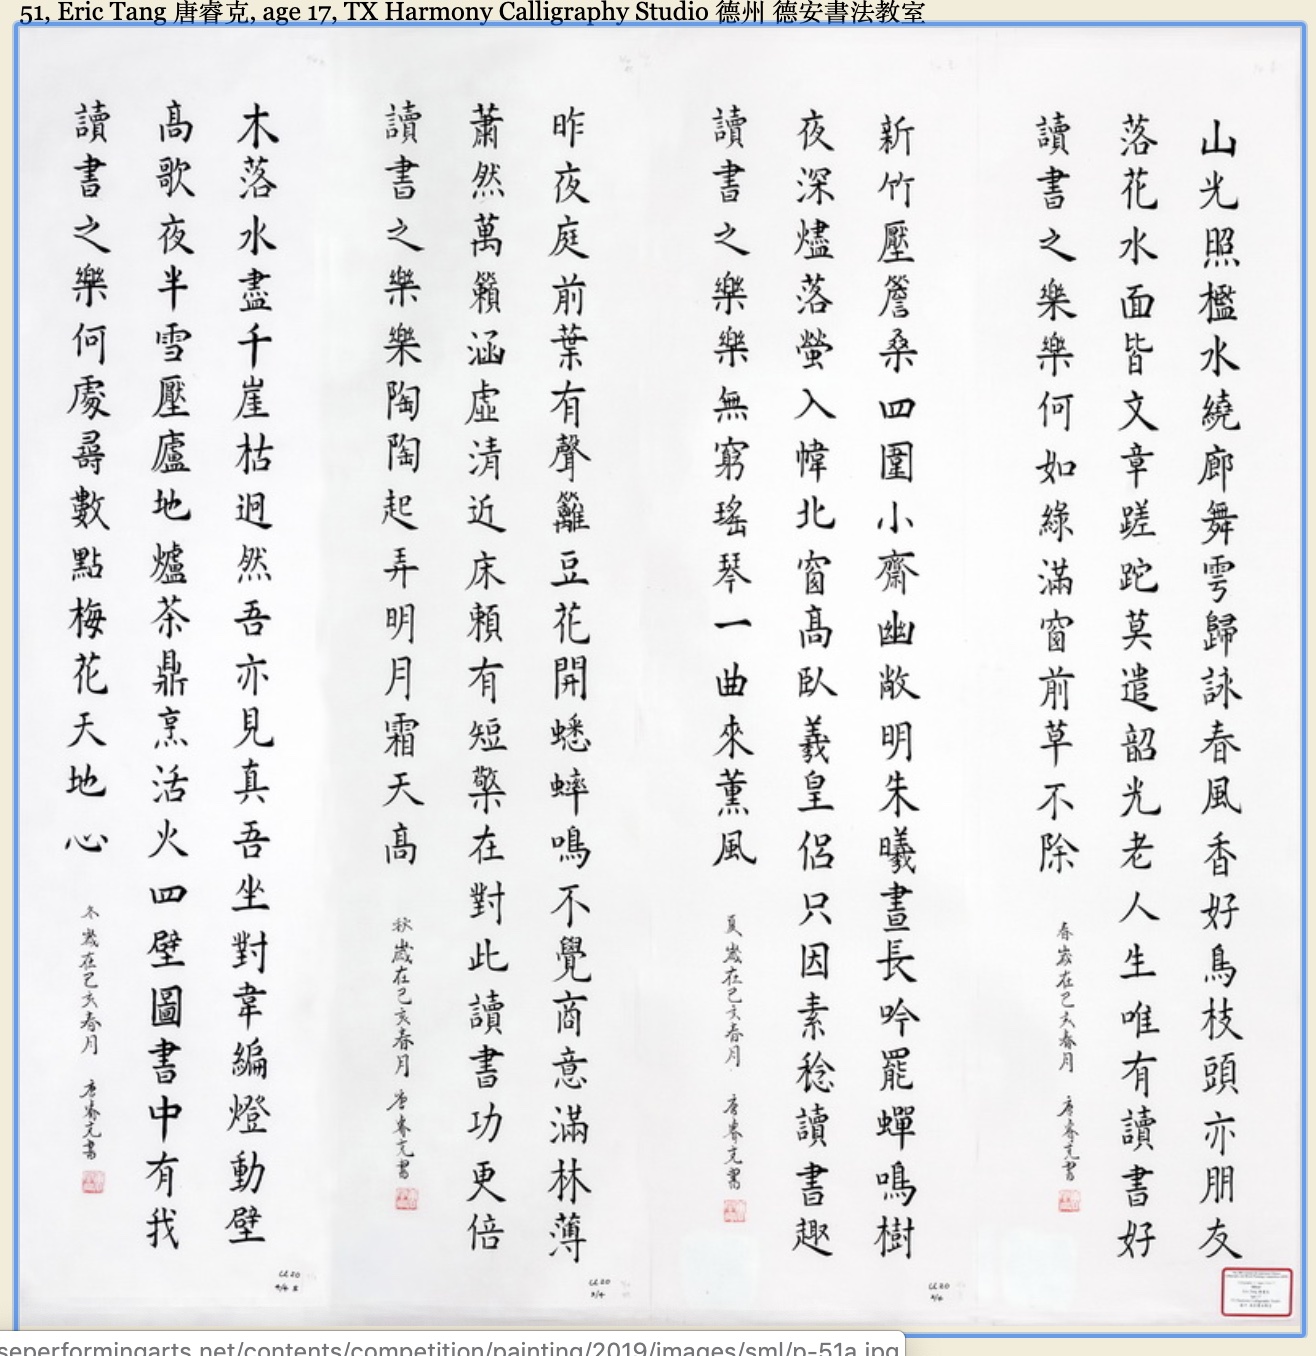 51, Eric Tang 唐睿克, age 17, TX Harmony Calligraphy Studio 德州 德安書法教室
山光照檻水繞廊舞雩歸詠春風香好鳥枝頭亦朋友
落花水面皆文章蹉跎莫遣韶光老人生唯有讀書好
讀書之樂樂何如綠滿窗前草不除
春 歲在己亥春月 唐睿克書
新竹壓簷桑四圍小齋幽敞明朱曦晝長吟罷蟬鳴樹
夜深燼落螢入幃北窗高臥羲皇侶只因素稔讀書趣
讀書之樂樂無窮瑤琴一曲來薰風
夏 歲在己亥春月 唐睿克書
昨夜庭前葉有聲籬豆花開蟋蟀鳴不覺商意滿林薄
蕭然萬籟涵虛清近床賴有短檠在對此讀書功更倍
讀書之樂樂陶陶起弄明月霜天高
秋 歲在己亥春月 唐睿克書
木落水盡千崖枯迥然吾亦見真吾坐對韋編燈動壁
高歌夜半雪壓廬地爐茶鼎烹活火四壁圖書中有我
讀書之樂何處尋數點梅花天地心
冬 歲在己亥春月 唐睿克書
seperformingarts.net/contents/competition/painting/2019/images/sml/p-51a.jpg